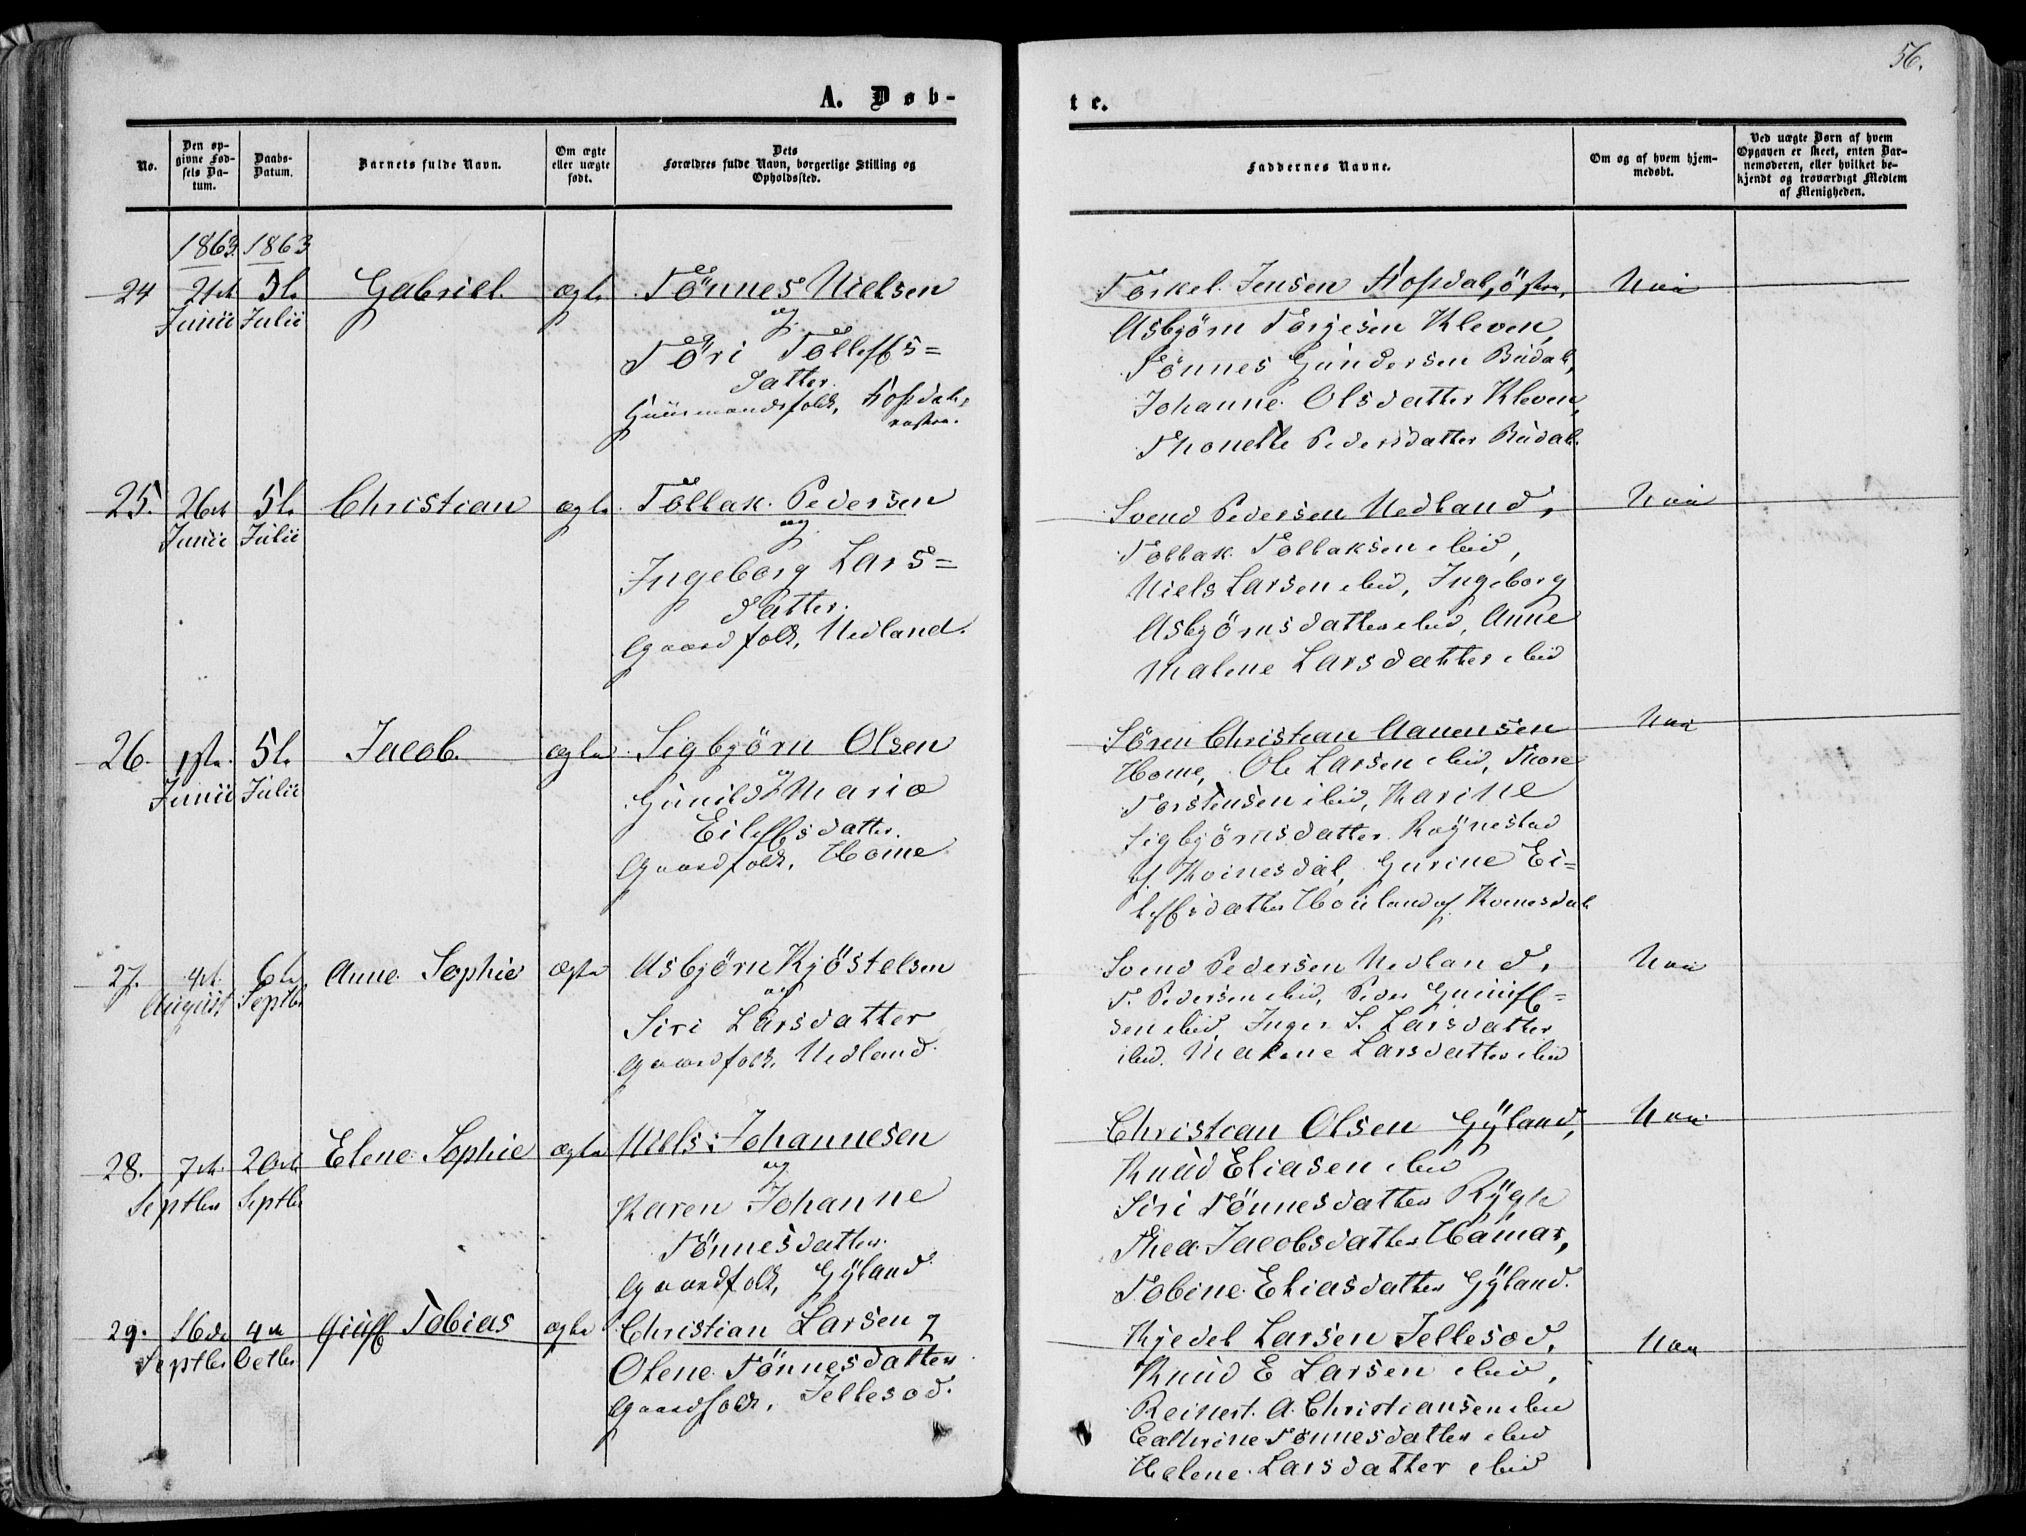 56.
A. Døb-
te.
No.
Den op-
givne Fød-
sels Da-
tum.
Daabs-
Datum.
Barnets fulde Navn.
Om ægte
eller uægte
født.
Dets
Forældres fulde Navn, borgerlige Stilling og
Opholdssted.
Faddernes Navne.
Om og af hvem hjem-
medøbt.
Ved uægte Børn af hvem
Opgaven er skeet, enten Bar-
nemoderen, eller hvilket be-
kjendt og troværdigt Medlem
af Menigheden.
1863. 1863
24 21de 5te Gabriel. ægte Tönnes Nielsen
Junii Julii og
Töri Tollefs=
datter.
Huusmandsfolk,
Torkel Jensen
Asbjörn Torjesen Kleven,
Tönnes Gundersen Büdal,
Johanne Olsdatter Kleven,
Thonette Pedersdatter Büdal.
25. 26de 5te Christian ægte Tollak Pedersen
Junii Julii og
Ingeborg Lars=
datter.
Gaardfolk, Nedland.
Svend Pedersen Nedland,
Tollak Tollaksen ibid,
Niels Larsen ibid, Ingeborg
Asbjörnsdatter ibid, Anne
Malene Larsdatter ibid
26. 1ste 5te Jacob. ægte Sigbjörn Olsen
Junii Julii og
Gunild Maria
Eilefsdatter.
Gaardfolk, Home
Sören Christian Aanensen
Home, Ole Larsen ibid, Thore
Torstensen ibid, Karine
Sigbjörnsdatter Röynestad
af Kvinesdal, Gurine Ei=
lefsdatter Houland af Kvinesdal
27. 4de 6te Anne Sophie ægte Asbjörn Kjöstelsen
August Septbr og
Siri Larsdatter
Gaardfolk, Nedland.
Svend Pedersen Nedland,
T. Pedersen ibid, Peder Guuuf=
sen ibid, Inger S. Larsdatter
ibid. Malene Larsdatter ibid
28. 7de 20de Elene Sophie ægte Niels Johannesen
Septbr Septbr og
Karen Johanne
Tönnesdatter.
Gaardfolk, Gyland.
Christian Olsen Gyland,
Knud Eliasen ibid
Siri Tönnesdatter
Thea Jacobsdatter Hamar,
Tobine Eliasdatter Gyland.
29. 16de 4de Tobias ægte Christian Larsen
Septbr Octbr Olene Tönnesdatter
Gaardfolk, Jellesod.
Kjedel Larsen Jellesod,
Knud E Larsen ibid,
Reinert A. Christiansen ibid
Cathrine Tönnesdatter ibid
Helene Larsdatter ibid